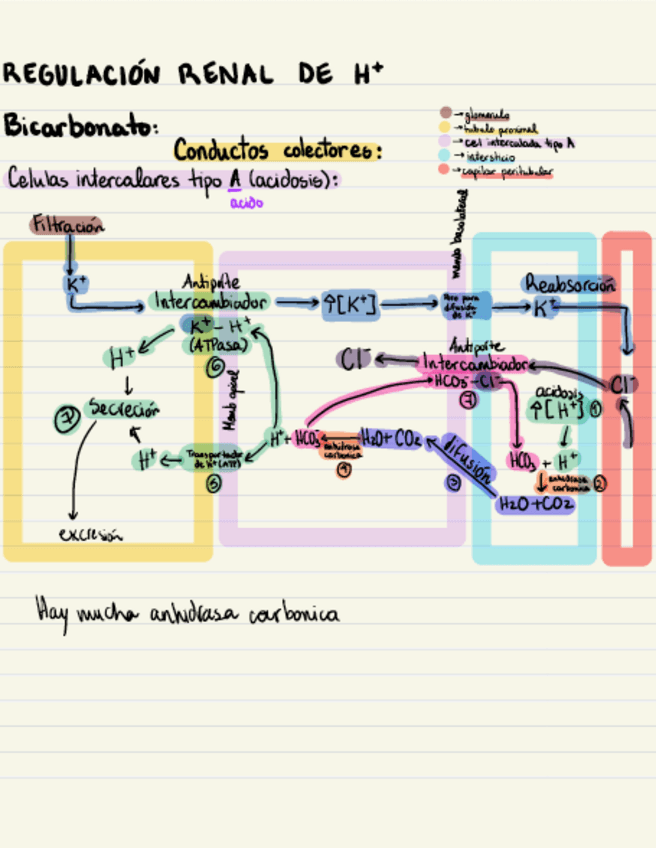 REGULACIÓN RENAL DE H+
Bicarbonato:
→ glomerulo
→ tubulo proximal
→ cel intercalada tipo A
→ intersticio
→ capilar peritubular
Conductos colectores:
Celulas intercalares tipo A (acidosis):
acido
Filtración
K+
Antiporte
Intercambiador
K+ - H+
(ATPasa)
6
↑[K+]
memb basolateral
Poro para
difusión
de K+
Reabsorción
K+
H+
Memb apical
Cl-
Antiporte
Intercambiador
HCO3- - Cl-
7
Cl-
acidosis
↑[H+] 1
7
Secreción
H+
Transportador
de H+ (ATP)
5
H+ + HCO3
anhidrasa
carbonica
4
H2O + CO2
difusión
3
HCO3 + H+
anhidrasa
carbonica 2
H2O + CO2
excresión
Hay mucha anhidrasa carbonica